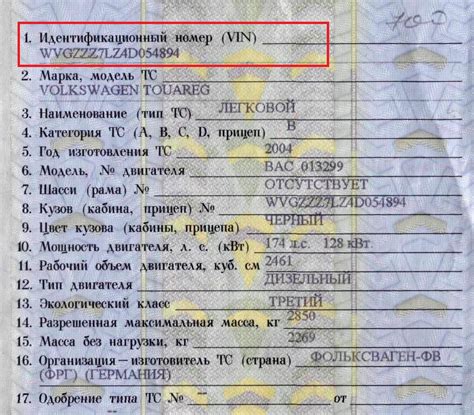 1. Идентификационный номер (VIN)
WVGZZZ7LZ4D054894
2. Марка, модель ТС
VOLKSWAGEN TOUAREG
3. Наименование (тип ТС) ЛЕГКОВОЙ
4. Категория ТС (А, В, С, D, прицеп) В
5. Год изготовления ТС 2004
6. Модель, № двигателя BAC 013299
7. Шасси (рама) № ОТСУТСТВУЕТ
8. Кузов (кабина, прицеп) № WVGZZZ7LZ4D054894
9. Цвет кузова (кабины, прицепа) ЧЕРНЫЙ
10. Мощность двигателя, л. с. (кВт) 174 л.с. 128 кВт.
11. Рабочий объем двигателя, куб. см 2461
12. Тип двигателя ДИЗЕЛЬНЫЙ
13. Экологический класс ТРЕТИЙ
14. Разрешенная максимальная масса, кг 2850
15. Масса без нагрузки, кг 2269
16. Организация — изготовитель ТС (страна) ФОЛЬКСВАГЕН-ФВ
(ФРГ) (ГЕРМАНИЯ)
17. Одобрение типа ТС № -- от -